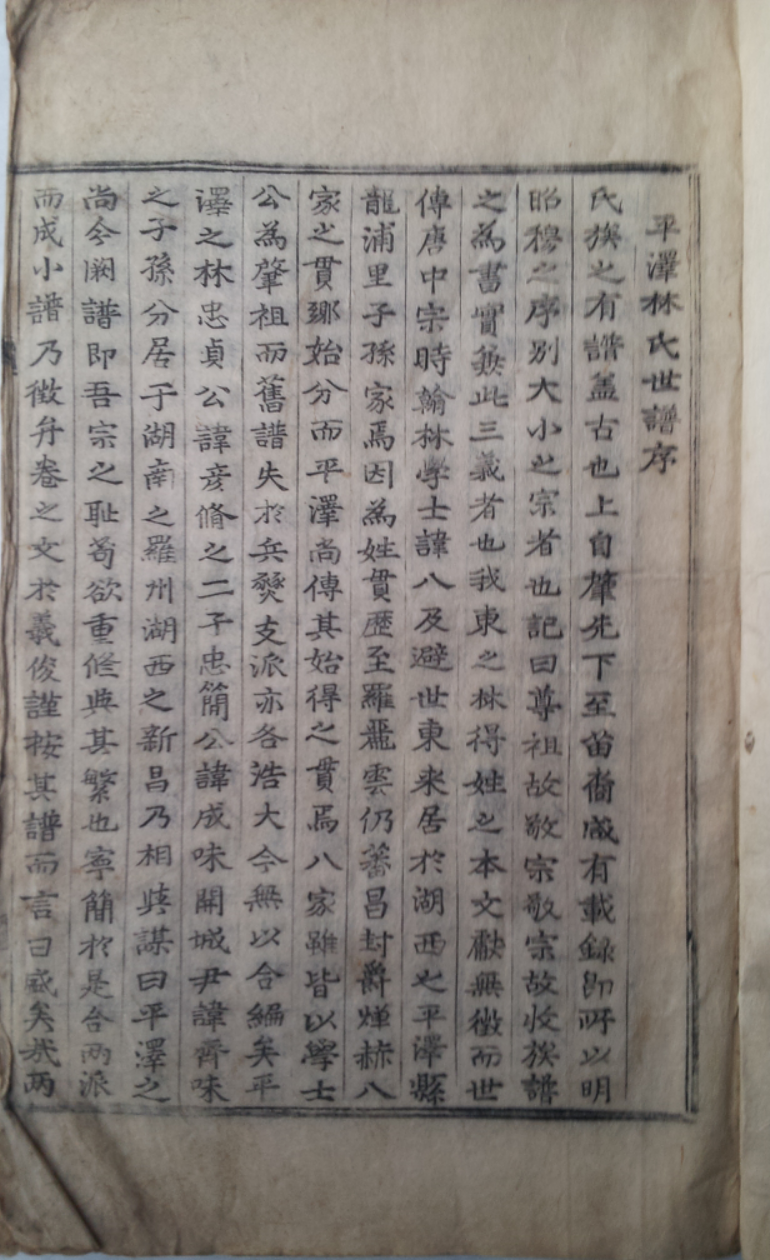 平澤林氏世譜序
氏族之有譜盖古也上自肇先下至苗裔咸有載録即所以明
昭穆之序別大小之宗者也記曰尊祖故敬宗敬宗故收族譜
之為書實兼此三義者也我東之林得姓之本文獻無徵而世
傳唐中宗時翰林學士諱八及避世東来居於湖西之平澤縣
龍浦里子孫家焉因為姓貫歴至羅麗雲仍蕃昌封爵燀赫八
家之貫鄕始分而平澤尚傳其始得之貫焉八家雖皆以學士
公為肇祖而舊譜失於兵燹支派亦各浩大今無以合編矣平
澤之林忠貞公諱彦脩之二子忠簡公諱成味開城尹諱齊味
之子孫分居于湖南之羅州湖西之新昌乃相與謀曰平澤之
尚今闕譜即吾宗之耻苟欲重修與其繁也寧簡於是合兩派
而成小譜乃徵弁卷之文於羲俊謹按其譜而言曰盛矣哉兩